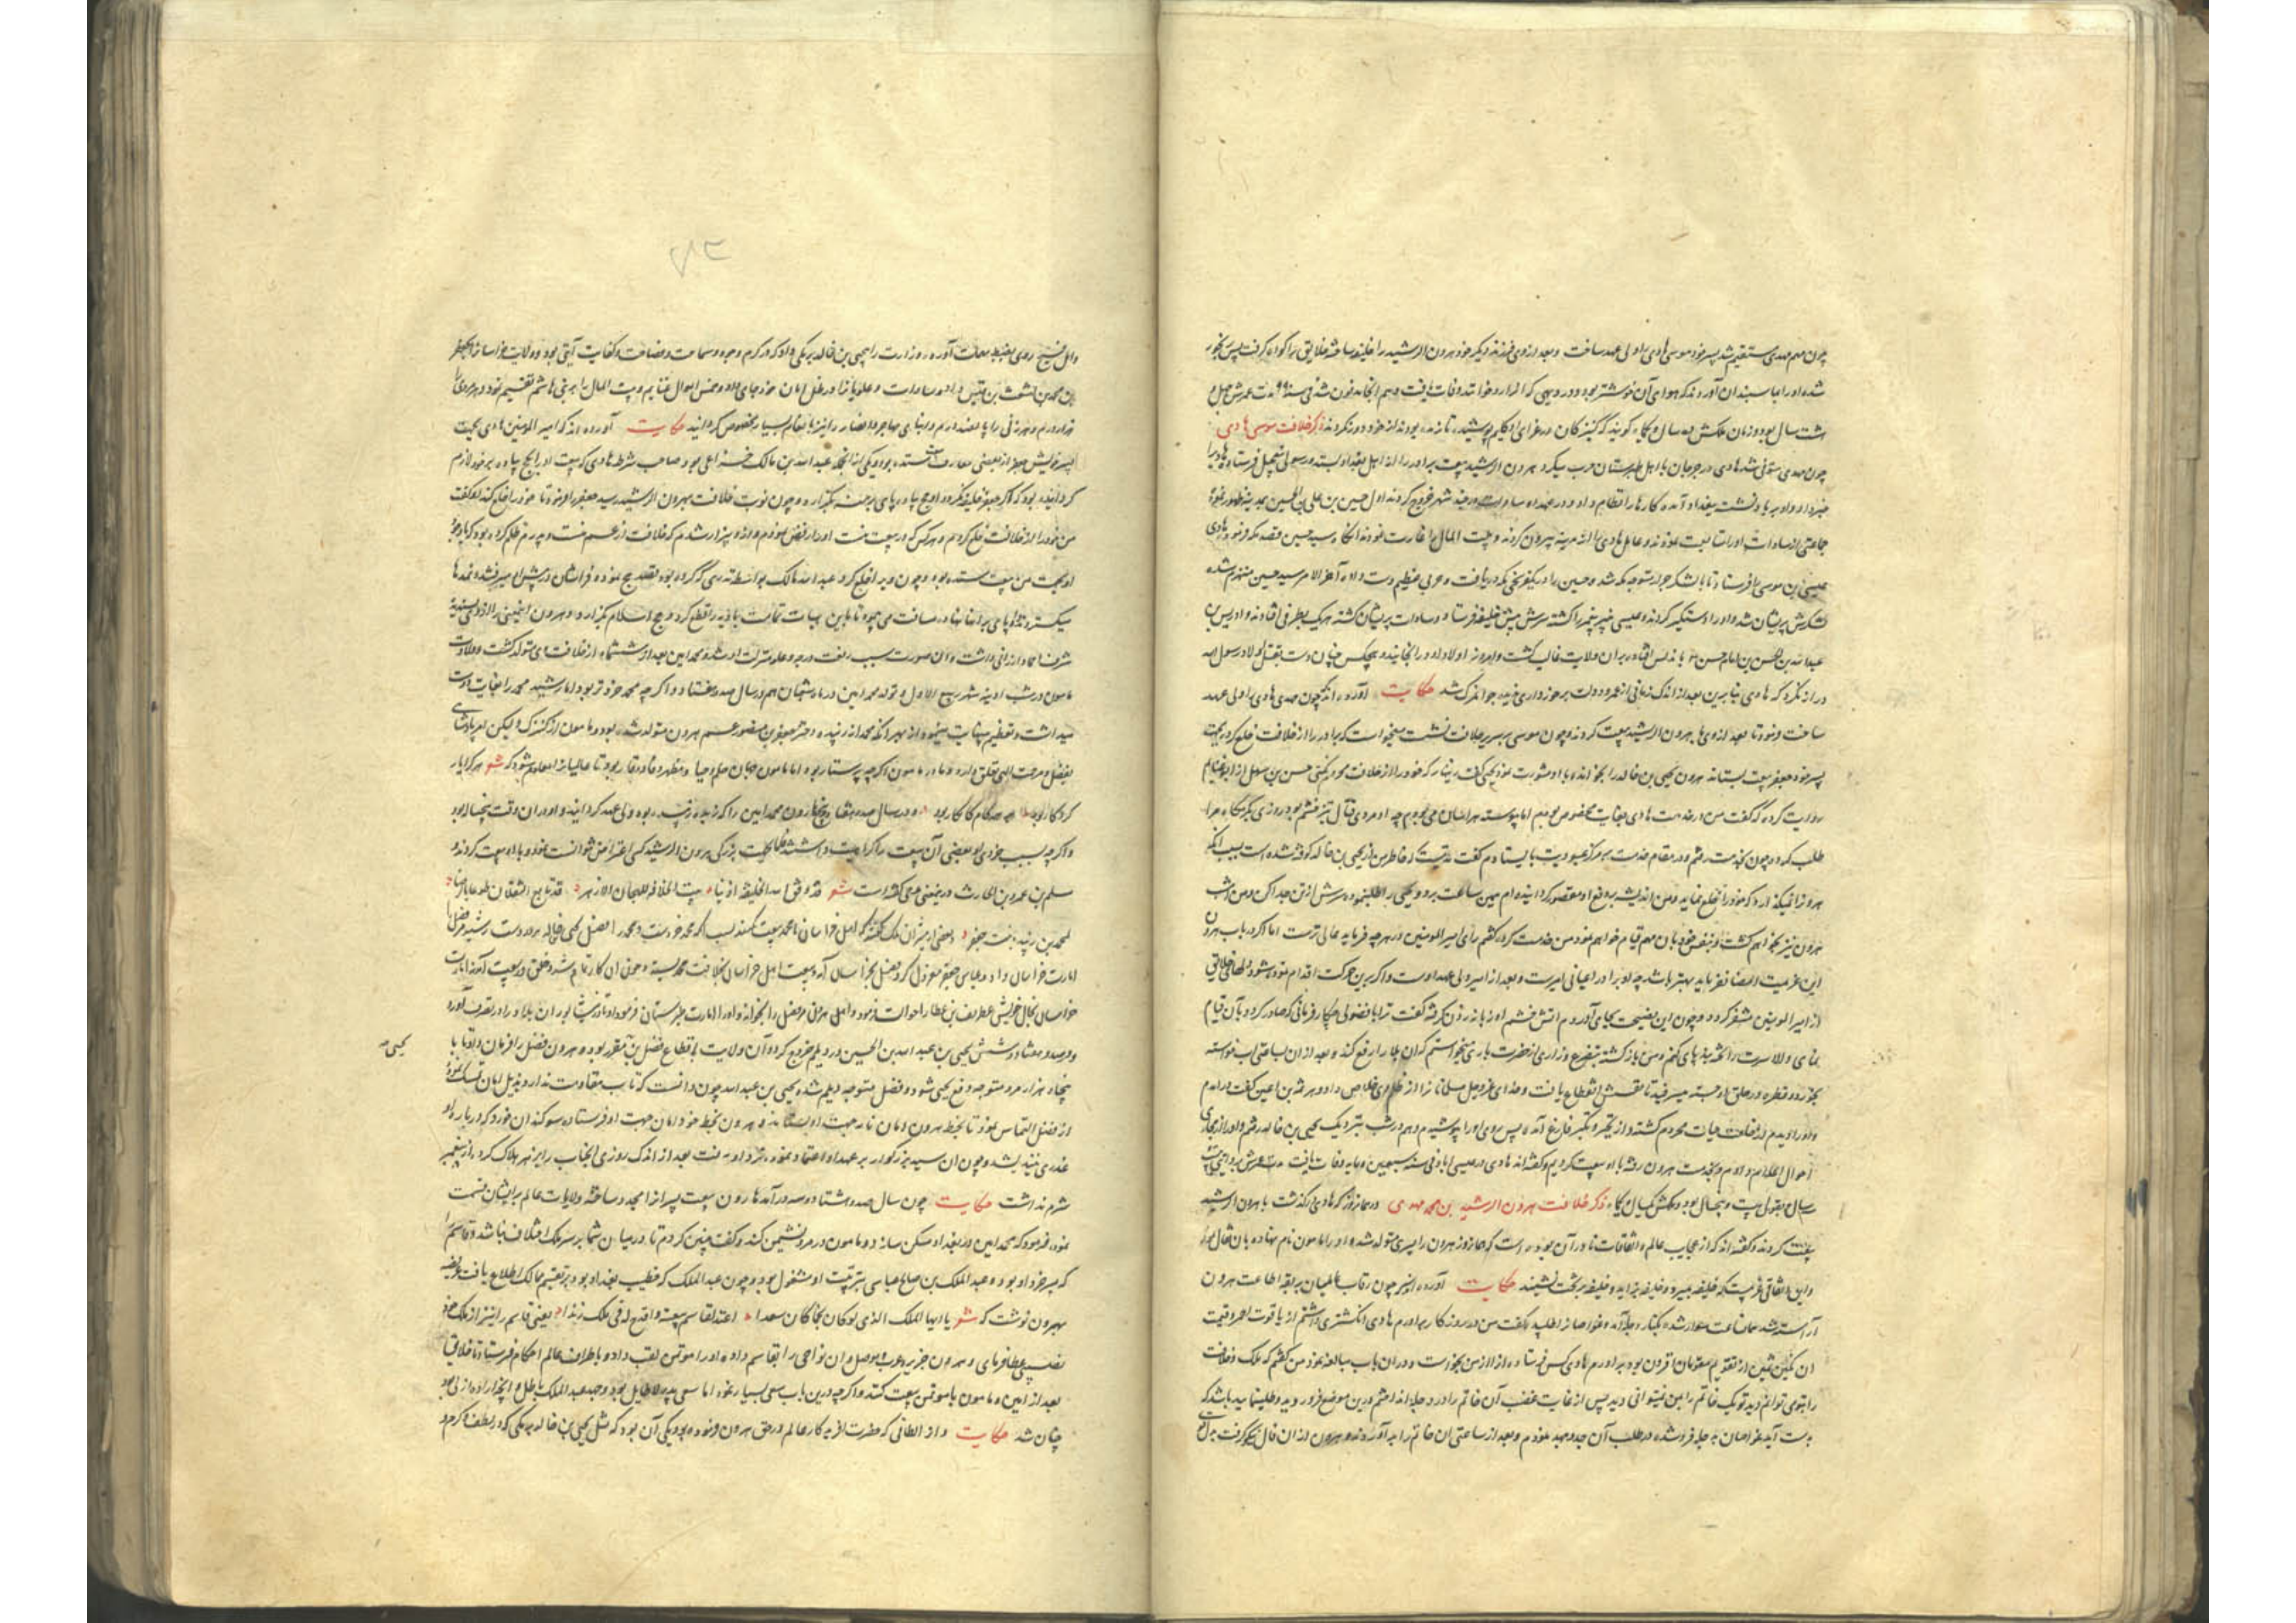 چون مهم مهدی مستقیم شد پسر خود موسی هادی را ولی عهد ساخت و بعد از وی فرزند دیگر خود هرون الرشید را خلیفه ساخته خلایق را گواه گرفت پس رنجور
شده او را بماسبندان آوردند که هوای آن خوشتر بود و در دیهی که آنرا خوانند وفات یافت و هم آنجا مدفون شد مدت عمرش چهل و
هشت سال بود و زمان ملکش ده سال و یکماه گویند که کنیزکان در عزای او گلیم پوشیدند تا زنده بودند از خود دور نکردند ذکر خلافت موسی هادی
چون مهدی متوفی شد هادی در جرجان با اهل طبرستان حرب میکرد هرون الرشید بیعت برادر را از اهل بغداد بستد و رسولی بتعجیل فرستاد و هادی را
خبر داد و او بر باد نشست ببغداد آمد و کارها را انتظام داد و در عهد او سادات در چند شهر خروج کردند اول حسین بن علی بن الحسین بمدینه ظهور نمود
جماعتی از سادات او را متابعت نمودند و عامل هادی را از مدینه بیرون کردند و بیت المال را غارت نمودند آنگاه سید حسین قصد مکه فرمود هادی
عیسی بن موسی را فرستاد تا با لشکر جرار متوجه مکه شد و حسین را در یکفرسخی مکه دریافت و حربی عظیم دست داد آخر الامر سید حسین منهزم شده
لشکرش پریشان شد و او را دستگیر کردند و عیسی را کشته سرش پیش خلیفه فرستاد و سادات پریشان گشته هریک بطرفی افتادند و ادریس بن
عبدالله بن الحسن بن امام حسن باندلس افتاد و بر ان ولایت غالب گشت و امروز اولاد او در آنجایند و هیچکس چنان دست بقتل اولاد رسول الله
دراز نکرد که هادی بنابرین بعد از اندک زمانی از عمر و دولت برخورداری ندیده جوانمرگ شد حکایت آورده اند که چون مهدی هادی را ولی عهد
ساخت و فرمود تا بعد از وی با هرون الرشید بیعت کردند و چون موسی بر سریر خلافت نشست میخواست که برادر را از خلافت خلع کرده بجهت
پسر خود جعفر بیعت بستاند هرون یحیی بن خالد را بخواند و با او مشورت نمود یحیی گفت زینهار که خود را از خلافت محروم نکنی حسن بن سهل از ابو غانم
روایت کرده که گفت من در خدمت هادی بعنایت مخصوص بودم اما پیوسته هراسان می بودم چه او مردی قتال تیز خشم بود روزی بگرمگاه مرا
طلب کرد و چون بخدمت رفتم و در مقام خدمت بر مرکز عبودیت بایستادم گفت مدتیست که خاطر من از یحیی بن خالد کوفته شده است بسبب انکه
هرون را نمیگذارد که خود را خلع نماید و من اندیشه بر دفع او مقصور گردانیده ام همین ساعت برو و یحیی را طلب نموده سرش از تن جدا کن و من امشب
هرون نیز بخواهم کشت و بنفس خود بان مهم قیام خواهم نمود من خدمت کرده گفتم رای امیر المومنین در هرچه فرماید عالی ترست اما اگر در باب هرون
این عزیمت امضا نفرماید بهتر باشد چه او برادر اعیانی امیرست و بعد از امیر ولی عهد اوست و اگر برین حرکت اقدام نموده شود دلهای خلایق
از امیر المومنین متنفر گردد و چون این نصیحت بجای آوردم آتش خشم او زبانه زدن گرفته گفت ترا با فضولی چکار فرمانی که صادر کرد و بآن قیام
نمای والا سرت را
بخورد و قطره در حلق او جسته میسرفید تا نفسش انقطاع یافت و خدای عز و جل مسلمانان را از ظلم وی خلاص داد و هرثمه بن اعین گفت در آمدم
و او را دیدم از خلعت حیات محروم گشته و از تکبر فارغ آمده پس روی او را پوشیدم و هم در شب بنزدیک یحیی بن خالد رفتم و او را از مجاری
احوال اعلام دادم و بخدمت هرون رفته با او بیعت کردیم و گفته اند هادی در عیسی اباد فی سنه سبعین و مایه وفات یافت مدت عمرش بروایتی بیست
سال و بقولی بیست و پنجسال بود و ملکش یکسال و یکماه ذکر خلافت هرون الرشید بن محمد مهدی در همانروز که هادی در گذشت با هرون الرشید
بیعت کردند و گفته اند که از عجایب عالم و اتفاقات نادر آن بوده است که همانروز هرون را پسری متولد شد و او را مامون نام نهاد و بان فال
و این اتفاقی غریبست که خلیفه بمیرد و خلیفه بزاید و خلیفه بر تخت نشیند حکایت آورده اند که چون رقاب عالمیان بربقه اطاعت هرون
آراسته شد همان ساعت سوار شده بکنار دجله آمد و غواصان را طلبید گفت من در روزگار برادرم هادی انگشتری داشتم از یاقوت احمر و قیمت
ان نگین ثمین از تقویم مقومان افزون بود برادرم هادی کس فرستاد و آنرا از من بخواست و در ان باب مبالغه نمود من گفتم که ملک و خلافت
را بتوی توانم دید تو یک خاتم را بمن نمیتوانی دید پس از غایت غضب آن خاتم را در دجله انداختم درین موضع فرو روید و طلب نمایید باشد که
بدست آید غواصان به دجله فرو شده در طلب آن جد و جهد نمودم و بعد از ساعتی ان خاتم را به آوردند و هرون از ان فال نیکو گرفت
روی بضبط مهمات آورده وزارت را بیحیی بن خالد برمکی داد که در کرم و جود و سماحت و فصاحت و کفایت آیتی بود و ولایت خراسان را بجعفر
بن محمد بن اشعث بن قیس داد و سادات و علویان را در ظل امان خود جای داد و خمس اموال غنایم و بیت المال را بر بنی هاشم تقسیم نمود و هر مردی را
هزار درم و هر زنی را پانصد درم و ابنای مهاجر و انصار را نیز بانعام بسیار مخصوص گردانید حکایت آورده اند که امیر المومنین هادی بجهت
پسر خویش جعفر از بعضی معارف بیعت ستده بود و یکی از آنجمله عبدالله بن مالک خزاعی بود صاحب شرطه هادی که بیعت او را بحج پیاده بر خود لازم
گردانیده بود که اگر جعفر خلیفه نگردد او حج پیاده پای برهنه بگذارد و چون نوبت خلافت بهرون الرشید رسید جعفر را فرمود تا خود را خلع کند او گفت
من خود را از خلافت خلع کردم و هر کس که در بیعت منست او را رفض نمودم و از و بیزار شدم که خلافت از عم منست و پدرم ظلم کرده بود که با وجود
او بجهت من بیعت ستده بود و چون ویرا خلع کرد عبدالله مالک بواسطه نذری که کرده بود بقصد حج نموده فراشان در پیش او میرفتند و نمدها
میگستردند و او پای برانجا نهاده مسافت می پیمود تا باین هیات تمامت بادیه را قطع کرد و حج اسلام بگذارد و هرون این معنی را از و پسندیده
شرف احماد ارزانی داشت و آن صورت سبب رفعت درجه و علو منزلت او شد و محمد امین بعد از ششماه از خلافت وی متولد گشت و ولادت
مامون در شب ادینه شهر ربیع الاول و تولد محمد امین در ماه شعبان هم در سال صد و هفتاد و اگر چه محمد خردتر بود اما رشید محمد را بغایت دوست
میداشت و تعظیم بینهایت مینمود از بهر آنکه محمد از زبیده دختر جعفر بن منصور عم هرون متولد شده بود و مامون از کنیزک ولیکن امر پادشاهی
بفضل و مرحمت الهی تعلق دارد و مادر مامون اگر چه پرستار بود اما مامون جهان حلم و حیا و مظهر وفا و وقار بود تا عالمیان را معلوم شود که شعر هر کرا یار
کردگار بود همه کام کامکار بود و در سال صد و هفتاد و پنج هارون محمد امین را که زبیده بود ولی عهد گردانید و او در ان وقت پنجساله بود
و اگر چه بسبب خردی او بعضی آن بیعت را کراهیت داشتند فاما بجهت بزرگی هرون الرشید کسی اعتراض نتوانست نمود و با او بیعت کردند و
سلم بن عمرو بن الحارث درین معنی گفته است شعر قد وفق الله الخلیفه اذ بنا بیت الخلافه للهجان الازهر قد بایع الثقلان
لمحمد بن زبیده بنت جعفر و بعضی از مشیران ملک گفتند که اهل خراسان با محمد بیعت نکنند بسبب انکه محمد خردست و محمد را فضل یحیی خاله بود رشید فضل را
امارت خراسان داد و عباس جعفر معزول کرد و فضل بخراسان آمد و بیعت اهل خراسان بخلافت محمد بستد و چون ان کار تمام شد و خلق در بیعت آمدند امارت
خراسان بخال خویش غطریف بن عطا را حوالت فرمود و اهل هرون فضل را بخواند و او را امارت طبرستان فرمود و او تا در نیشابور ان بلاد را در تصرف آورد
و در صد و هفتاد و شش یحیی بن عبدالله بن الحسین در دیلم خروج کرد و آن ولایت باقطاع فضل بن یحیی مقرر بود و هرون فضل را فرمان داد تا با
پنجاه هزار مرد متوجه دفع یحیی شود و فضل متوجه دیلم شده یحیی بن عبدالله چون دانست که تاب مقاومت ندارد بذیل امان تمسک نمود
از فضل التماس نمود تا بخط هرون امان نامه جهت او بستاند و هرون بخط خود امان جهت او فرستاده سوگندان خورد که در باره او
غدری نیندیشد و چون ان سید بزرگوار بر عهد او اعتماد نموده نزد او رفت بعد از اندک روزی انجناب را بزهر هلاک کرد و از پیغمبر
شرم نداشت حکایت چون سال صد و هشتاد و سه در آمد هارون بیعت پسر انرا مجدد ساخته ولایات عالم بر ایشان قسمت
نمود فرمود که محمد امین در بغداد مسکن سازد و مامون در مرو نشیمن کند و گفت چنین کردم تا در میان شما بر سر ملک اختلاف نباشد و قاسم را
که پسر خرد او بود و عبدالملک بن صالح عباسی بتربیت او مشغول بود و چون عبدالملک که خطیب بغداد بود بر تقسیم ممالک اطلاع یافت
بهرون نوشت که شعر یا ایها الملک الذی لو کان نجما کان سعدا اعقد لقاسم بیعة و اقدح له فی ملک زندا یعنی قاسم را نیز از ملک خود
نصیبی عطا فرمای و هرون جزیره عرب و موصل و ان نواحی را بقاسم داده او را موتمن لقب داد و باطراف عالم احکام فرستاد تا خلایق
بعد از امین و مامون با موتمن بیعت کنند و اگر چه درین باب سعی بسیار نمود اما سعی لا طایل بود و جهد عبدالملک باطل و آنچه اراده ازلی بود
چنان شد حکایت و از الطافی که حضرت افریدگار عالم در حق هرون فرموده بود یکی آن بود که مثل یحیی بن خالد برمکی که در لطف و کرم و
یحیی